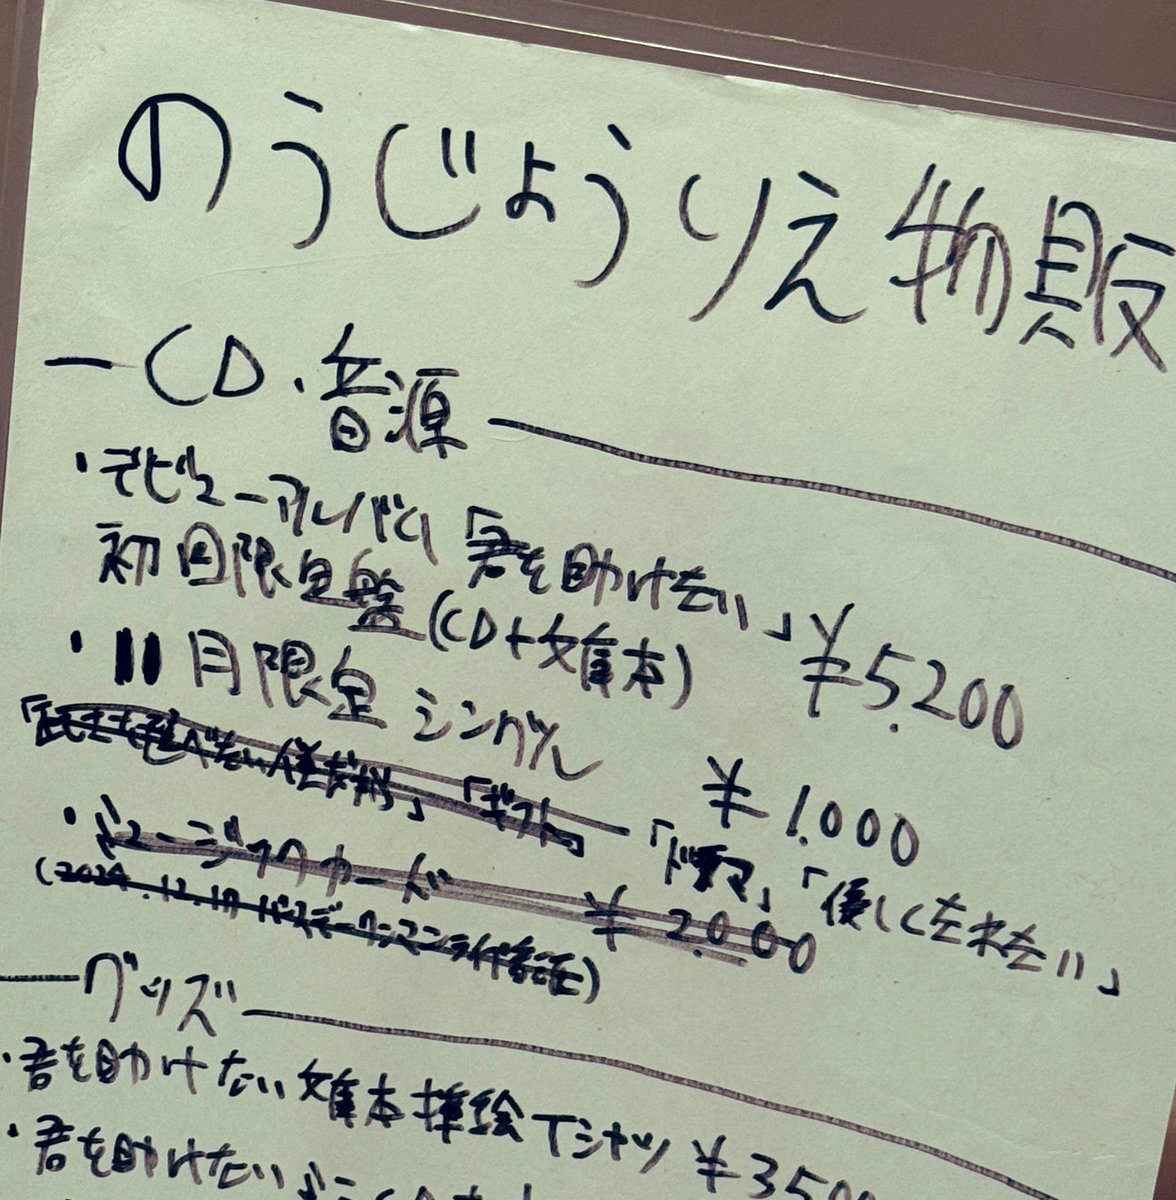 のうじょうりえ物販
ーCD・音源
・デビューアルバム「君を助けたい」
初回限定盤(CD+文庫本) ¥5.200
・11月限定 シングル ¥1.000
「ギフト」「ドラマ」「優しくなれない」
・ミュージックカード ¥2.000
(2024.12.17
ーグッズ
・君を助けたい文庫本挿絵Tシャツ ¥350
・君を助けたい